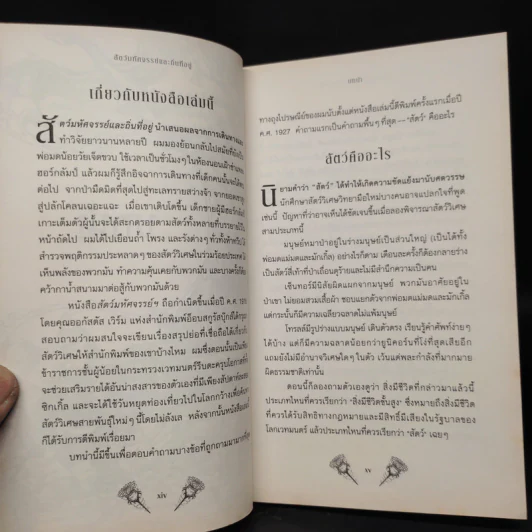 สัตว์มหัศจรรย์และถิ่นที่อยู่
เกี่ยวกับหนังสือเล่มนี้
สัตว์มหัศจรรย์และถิ่นที่อยู่ นำเสนอผลจากการเดินทางและ
ทำวิจัยยาวนานหลายปี ผมมองย้อนกลับไปสมัยที่ผมยังเป็น
พ่อมดน้อยวัยเจ็ดขวบ ใช้เวลาเป็นชั่วโมงๆ ในห้องนอน
ฮอร์กลัมป์ แล้วผมก็รู้สึกอิจฉาการเดินทางที่เด็กคนนั้นจะได้
ต่อไป จากป่ามืดมิดที่สุดไปสู่ทะเลทรายสว่างจ้า จากยอดเขา
สู่ปลักโคลนเฉอะแฉะ เมื่อเขาเติบโตขึ้น เด็กชายผู้มีฮอร์กลัมป์
เกาะเต็มตัวผู้นั้นจะได้สะกดรอยตามสัตว์ทั้งหลายที่บรรยายไว้ใน
หน้าถัดไป ผมได้ไปเยือนถ้ำ โพรง และรังต่างๆ ทั่วทั้งห้าทวีป
สำรวจพฤติกรรมประหลาดๆ ของสัตว์วิเศษในร่วมร้อยประเทศ
เห็นพลังของพวกมัน ทำความคุ้นเคยกับพวกมัน และบางครั้งก็ต้อง
คว้ากาน้ำสนามมาต่อสู้กับพวกมันด้วย
หนังสือสัตว์มหัศจรรย์ฯ ถือกำเนิดขึ้นเมื่อปี ค.ศ.
โดยคุณออกัสตัส เวิร์ม แห่งสำนักพิมพ์อ๊อบสกูรัสบุ๊กส์ได้กรุณา
สอบถามว่าผมสนใจจะเขียนเรื่องสรุปย่อที่เชื่อถือได้เกี่ยวกับ
สัตว์วิเศษให้สำนักพิมพ์ของเขาบ้างไหม ผมซึ่งตอนนั้นเป็นเพียง
ข้าราชการชั้นผู้น้อยในกระทรวงเวทมนตร์รีบตะครุบโอกาสที่
จะช่วยเสริมรายได้อันน่าสงสารของตัวเองที่มีเพียงสัปดาห์ละสอง
ซิกเกิ้ล และจะได้ใช้วันหยุดท่องเที่ยวไปในโลกกว้างเพื่อค้นหา
สัตว์วิเศษสายพันธุ์ใหม่ๆ นี้โดยไม่ลังเล หลังจากนั้นหนังสือเล่มนี้
ก็ได้รับการตีพิมพ์เรื่อยมา
บทนำนี้มีขึ้นเพื่อตอบคำถามบางข้อที่ถูกถามมามากที่สุด
xiv
บทนำ
ทางถุงไปรษณีย์ของผมนับตั้งแต่หนังสือเล่มนี้ตีพิมพ์ครั้งแรกเมื่อปี
ค.ศ. 1927 คำถามแรกเป็นคำถามพื้นๆ ที่สุด—"สัตว์" คืออะไร
สัตว์คืออะไร
นิยามคำว่า "สัตว์" ได้ทำให้เกิดความขัดแย้งมานับศตวรรษ
นักศึกษาสัตว์วิเศษวิทยามือใหม่บางคนอาจแปลกใจที่พูด
เช่นนี้ ปัญหาที่ว่าอาจเห็นได้ชัดเจนขึ้นเมื่อลองพิจารณาสัตว์วิเศษ
สามประเภทนี้
มนุษย์หมาป่าอยู่ในร่างมนุษย์เป็นส่วนใหญ่ (เป็นได้ทั้ง
พ่อมดแม่มดและมักเกิ้ล) อย่างไรก็ตาม เดือนละครั้งก็ต้องกลายร่าง
เป็นสัตว์สี่เท้าที่ป่าเถื่อนดุร้ายและไม่มีสำนึกความเป็นคน
เซ็นทอร์มีนิสัยผิดแผกจากมนุษย์ พวกมันอาศัยอยู่ใน
ป่าเขา ไม่ยอมสวมเสื้อผ้า ชอบแยกตัวจากพ่อมดแม่มดและมักเกิ้ล
แต่กระนั้นก็มีความเฉลียวฉลาดไม่แพ้มนุษย์
โทรลล์มีรูปร่างแบบมนุษย์ เดินตัวตรง เรียนรู้คำศัพท์ง่ายๆ
ได้บ้าง แต่ก็มีความฉลาดน้อยกว่ายูนิคอร์นที่โง่ที่สุดเสียอีก
แถมยังไม่มีอำนาจวิเศษใดๆ ในตัว เว้นแต่พละกำลังที่มากมาย
ผิดธรรมชาติเท่านั้น
ตอนนี้ก็ลองถามตัวเองดูว่า สิ่งมีชีวิตที่กล่าวมาแล้วนี้
ประเภทไหนที่ควรเรียกว่า "สิ่งมีชีวิตชั้นสูง" ซึ่งหมายถึงสิ่งมีชีวิต
ที่ควรได้รับสิทธิทางกฎหมายและมีสิทธิ์มีเสียงในรัฐบาลของ
โลกเวทมนตร์ แล้วประเภทไหนที่ควรเรียกว่า "สัตว์" เฉยๆ
xv